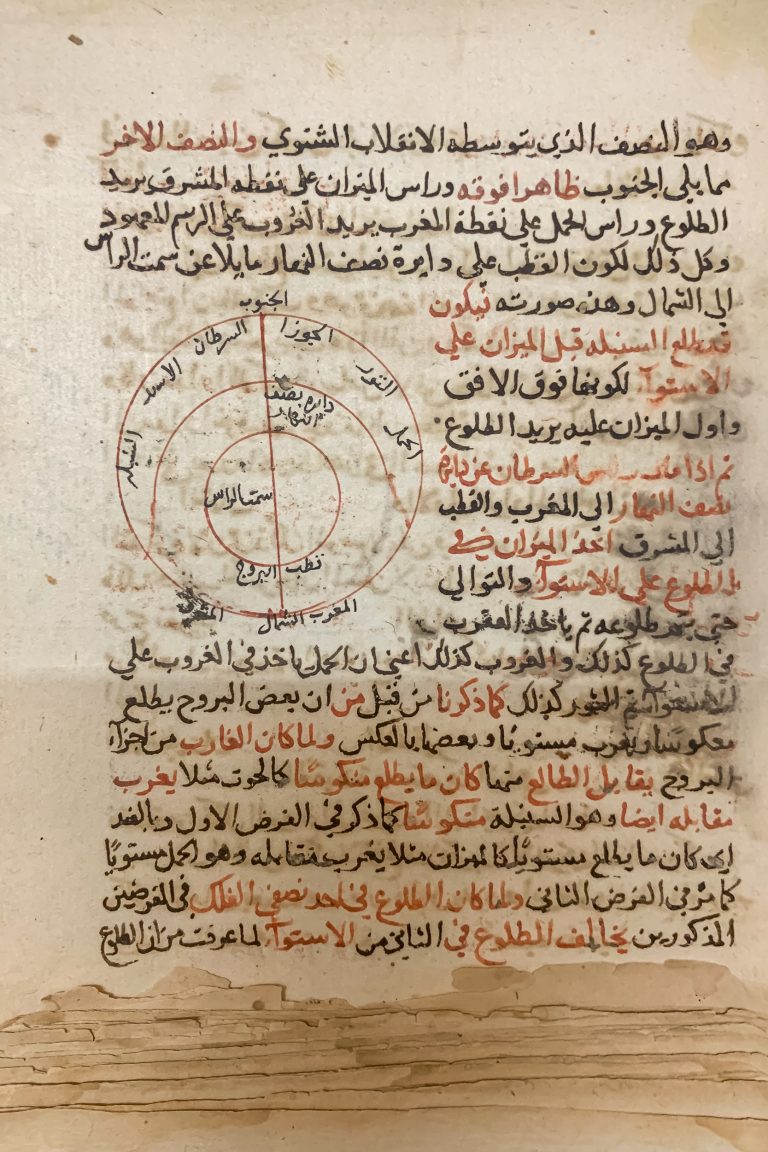 وهو النصف الذي يتوسطه الانقلاب الشتوي والنصف الاخر
مما يلي الجنوب ظاهرا فوقه وراس الميزان علي نقطه المشرق يريد
الطلوع وراس الحمل علي نقطة المغرب يريد الغروب علي الرسم المعهود
وكل ذلك لكون القطب علي دايرة نصف النهار مايلا عن سمت الراس
الي الشمال وهذه صورته فيكون
قد طلع السنبله قبل الميزان علي
الاستوآء لكونها فوق الافق
واول الميزان عليه يريد الطلوع
ثم اذا مال راس السرطان عن دايرة
نصف النهار الي المغرب والقطب
الي المشرق اخذ الميزان في
الطلوع علي الاستوآء والتوالي
حتي يتم طلوعه ثم ياخذ العقرب
في الطلوع كذلك والغروب كذلك اعني ان الحمل ياخذ في الغروب علي
الاستوآء ثم الثور كذلك كما ذكرنا من قبل من ان بعض البروج يطلع
معكوسا ويغرب مستويا وبعضها بالعكس ولما كان الغارب من اجزآء
البروج يقابل الطالع منها كان ما يطلع منكوسًا كالحوت مثلا يغرب
مقابله ايضا وهو السنبلة منكوسًا كما ذكر في الفرض الاول وبالضد
اي كان ما يطلع مستويًا كالميزان مثلا يغرب مقابله وهو الحمل مستويًا
كما مرّ في الفرض الثاني ولما كان الطلوع في احد نصفي الفلك في الفرضين
المذكورين يخالف الطلوع في الثاني من الاستوآء لما عرفت من ان الطلوع
الجنوب
الجوزا
السرطان
الثور
الاسد
الحمل
السنبله
دايرة نصف
النهار
سمت الراس
قطب البروج
المغرب
الشمال
المشرق